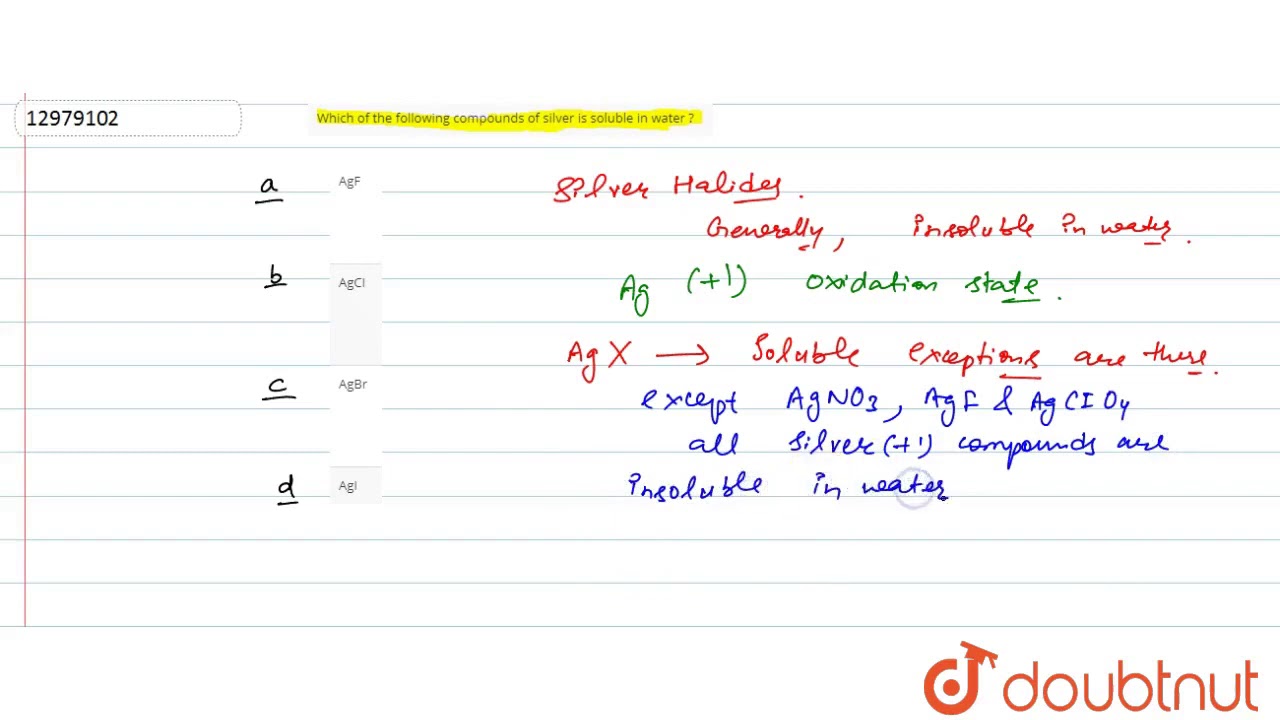 12979102
Which of the following compounds of silver is soluble in water ?
a AgF
Silver Halides.
Generally, insoluble in water.
b AgCl
Ag (+1) oxidation state.
AgX → Soluble exceptions are there.
c AgBr
except AgNO3, AgF & AgClO4
all silver(+1) compounds are
d AgI
insoluble in water
doubtnut